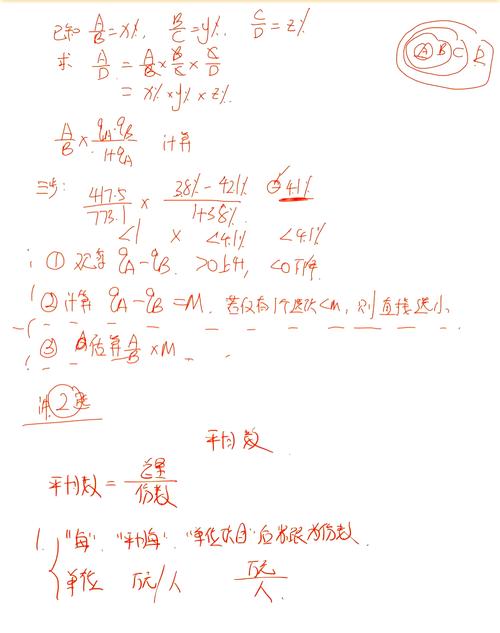 已知 A/B = x%, B/C = y%, C/D = z%
求 A/D = A/B × B/C × C/D
= x% × y% × z%.
A B C D
A/B × (qA - qB)/(1+qA) 计算
三步: 417.5/773.1 × (3.8% - 42.1%)/(1+3.8%) 4.1%
<1 × <4.1% <4.1%
① 观察 qA - qB. >0上升, <0下降.
② 计算 qA - qB = M. 若仅有1个选项<M, 则直接选小.
③ 估算 A/B × M
2
平均数
平均数 = 总量/份数
1. "每", "平均每", "单位 后常跟为份数.
单位 万元/人 万元/人.